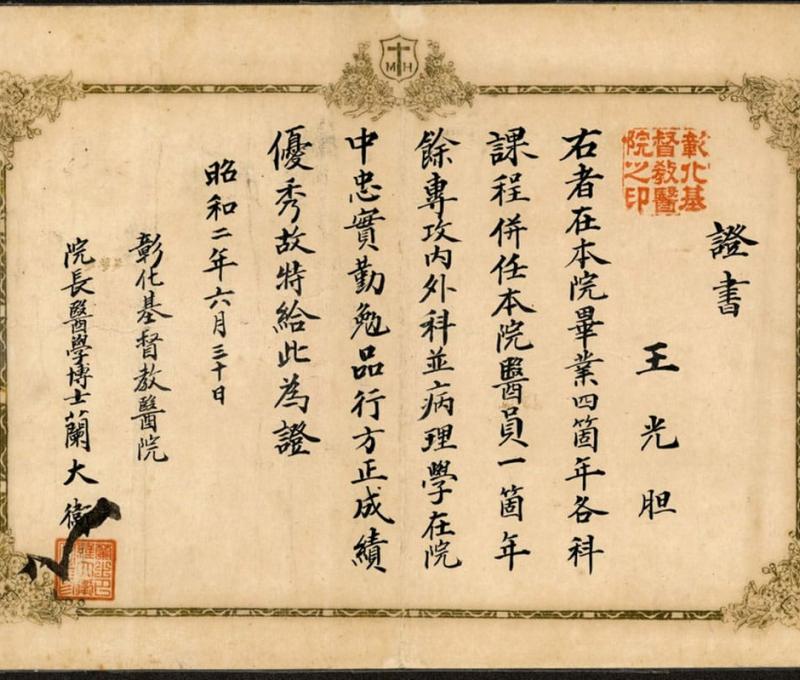 MH
彰化基
督教醫
院之印
證書
王光胆
右者在本院畢業四箇年各科
課程併任本院醫員一箇年
餘專攻內外科並病理學在院
中忠實勤勉品行方正成績
優秀故特給此為證
昭和二年六月三十日
彰化基督教醫院
院長醫學博士蘭大衛